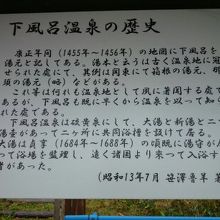 下風呂温泉の歴史
康正年間（1455年～1456年）の地図に下風呂を
湯元と記してある。湯本と云うは古く温泉地に冠
せられた處にて、其例は関東にて箱根の湯元、
頭の湯元（略）などがある。
これ等は何れも温泉地として風に著聞する處で
あるが、下風呂も既に早くから温泉を以って知
れていた。
下風呂温泉は硫黄泉にして、大湯と新湯と二
湯壺があって二ヶ所に共同浴槽を設けて居る。
大湯は貞享（1684年～1688年）の頃既に湯守が
って浴場を監理し、遠く諸国より来って入浴
者があった。
（昭和13年7月 笹澤善羊 著